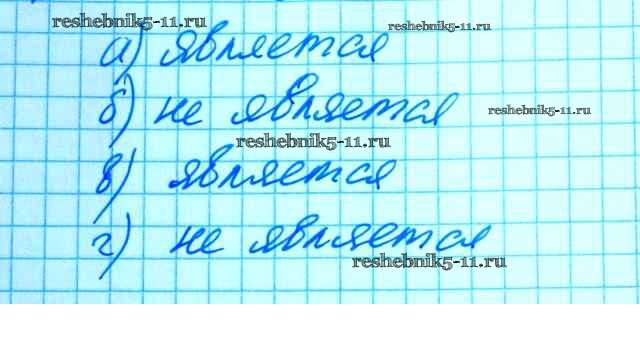 reshebnik5-11.ru
reshebnik5-11.ru
а) является
б) не является
reshebnik5-11.ru
reshebnik5-11.ru
в) является
г) не является
reshebnik5-11.ru